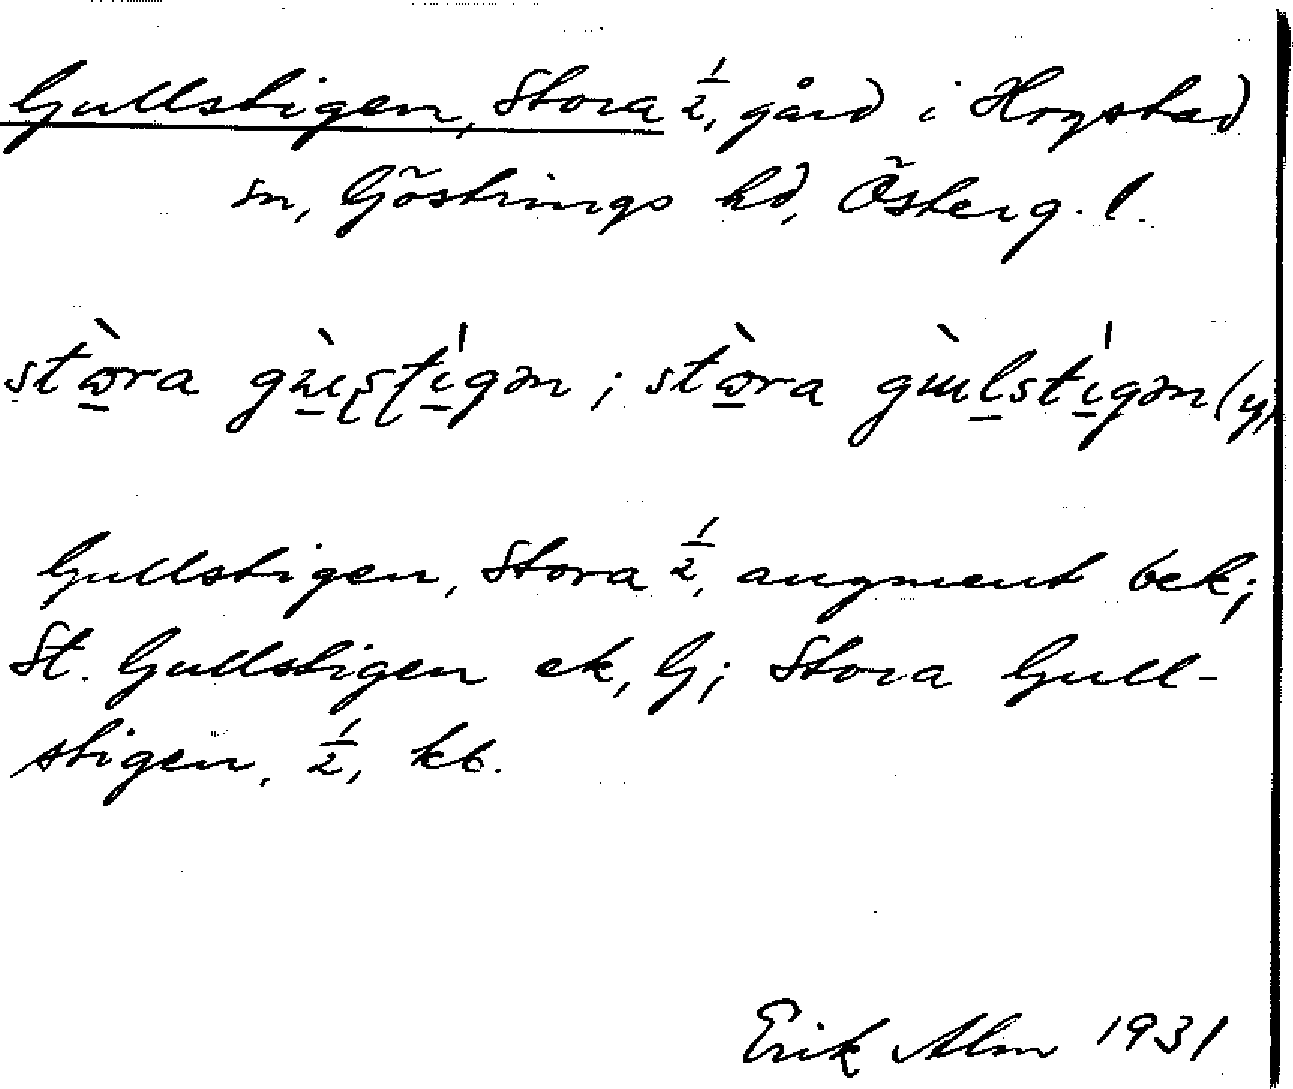 Gullstigen, Stora 1/2, gård i Hogstad
sn, Göstrings hd, Österg. l.
stɷ̀ra gɯ̀ʂʈígən; stɷ̀ra gɯ̀lstígən (y)
Gullstigen, Stora 1/2, augment bek;
St. Gullstigen ek, G; Stora Gull-
stigen, 1/2, kb.
Erik Alm 1931